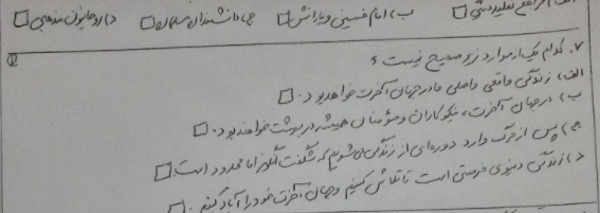 الف) مراجع تقلید دینی □ ب) امام خمینی و یارانش □ ج) دانشمندان مسلمان □ د) روحانیون مذهبی □
۷. کدام یک از موارد زیر صحیح نیست؟
الف) زندگی واقعی واصلی ما در جهان آخرت خواهد بود. □
ب) در جهان آخرت، نیکوکاران و مؤمنان همیشه در بهشت خواهند بود. □
ج) پس از مرگ وارد دوره ای از زندگی می شویم که شگفت انگیز اما محدود است. □
د) زندگی دنیوی فرصتی است تا تلاش کنیم و جهان آخرت خود را آباد کنیم. □